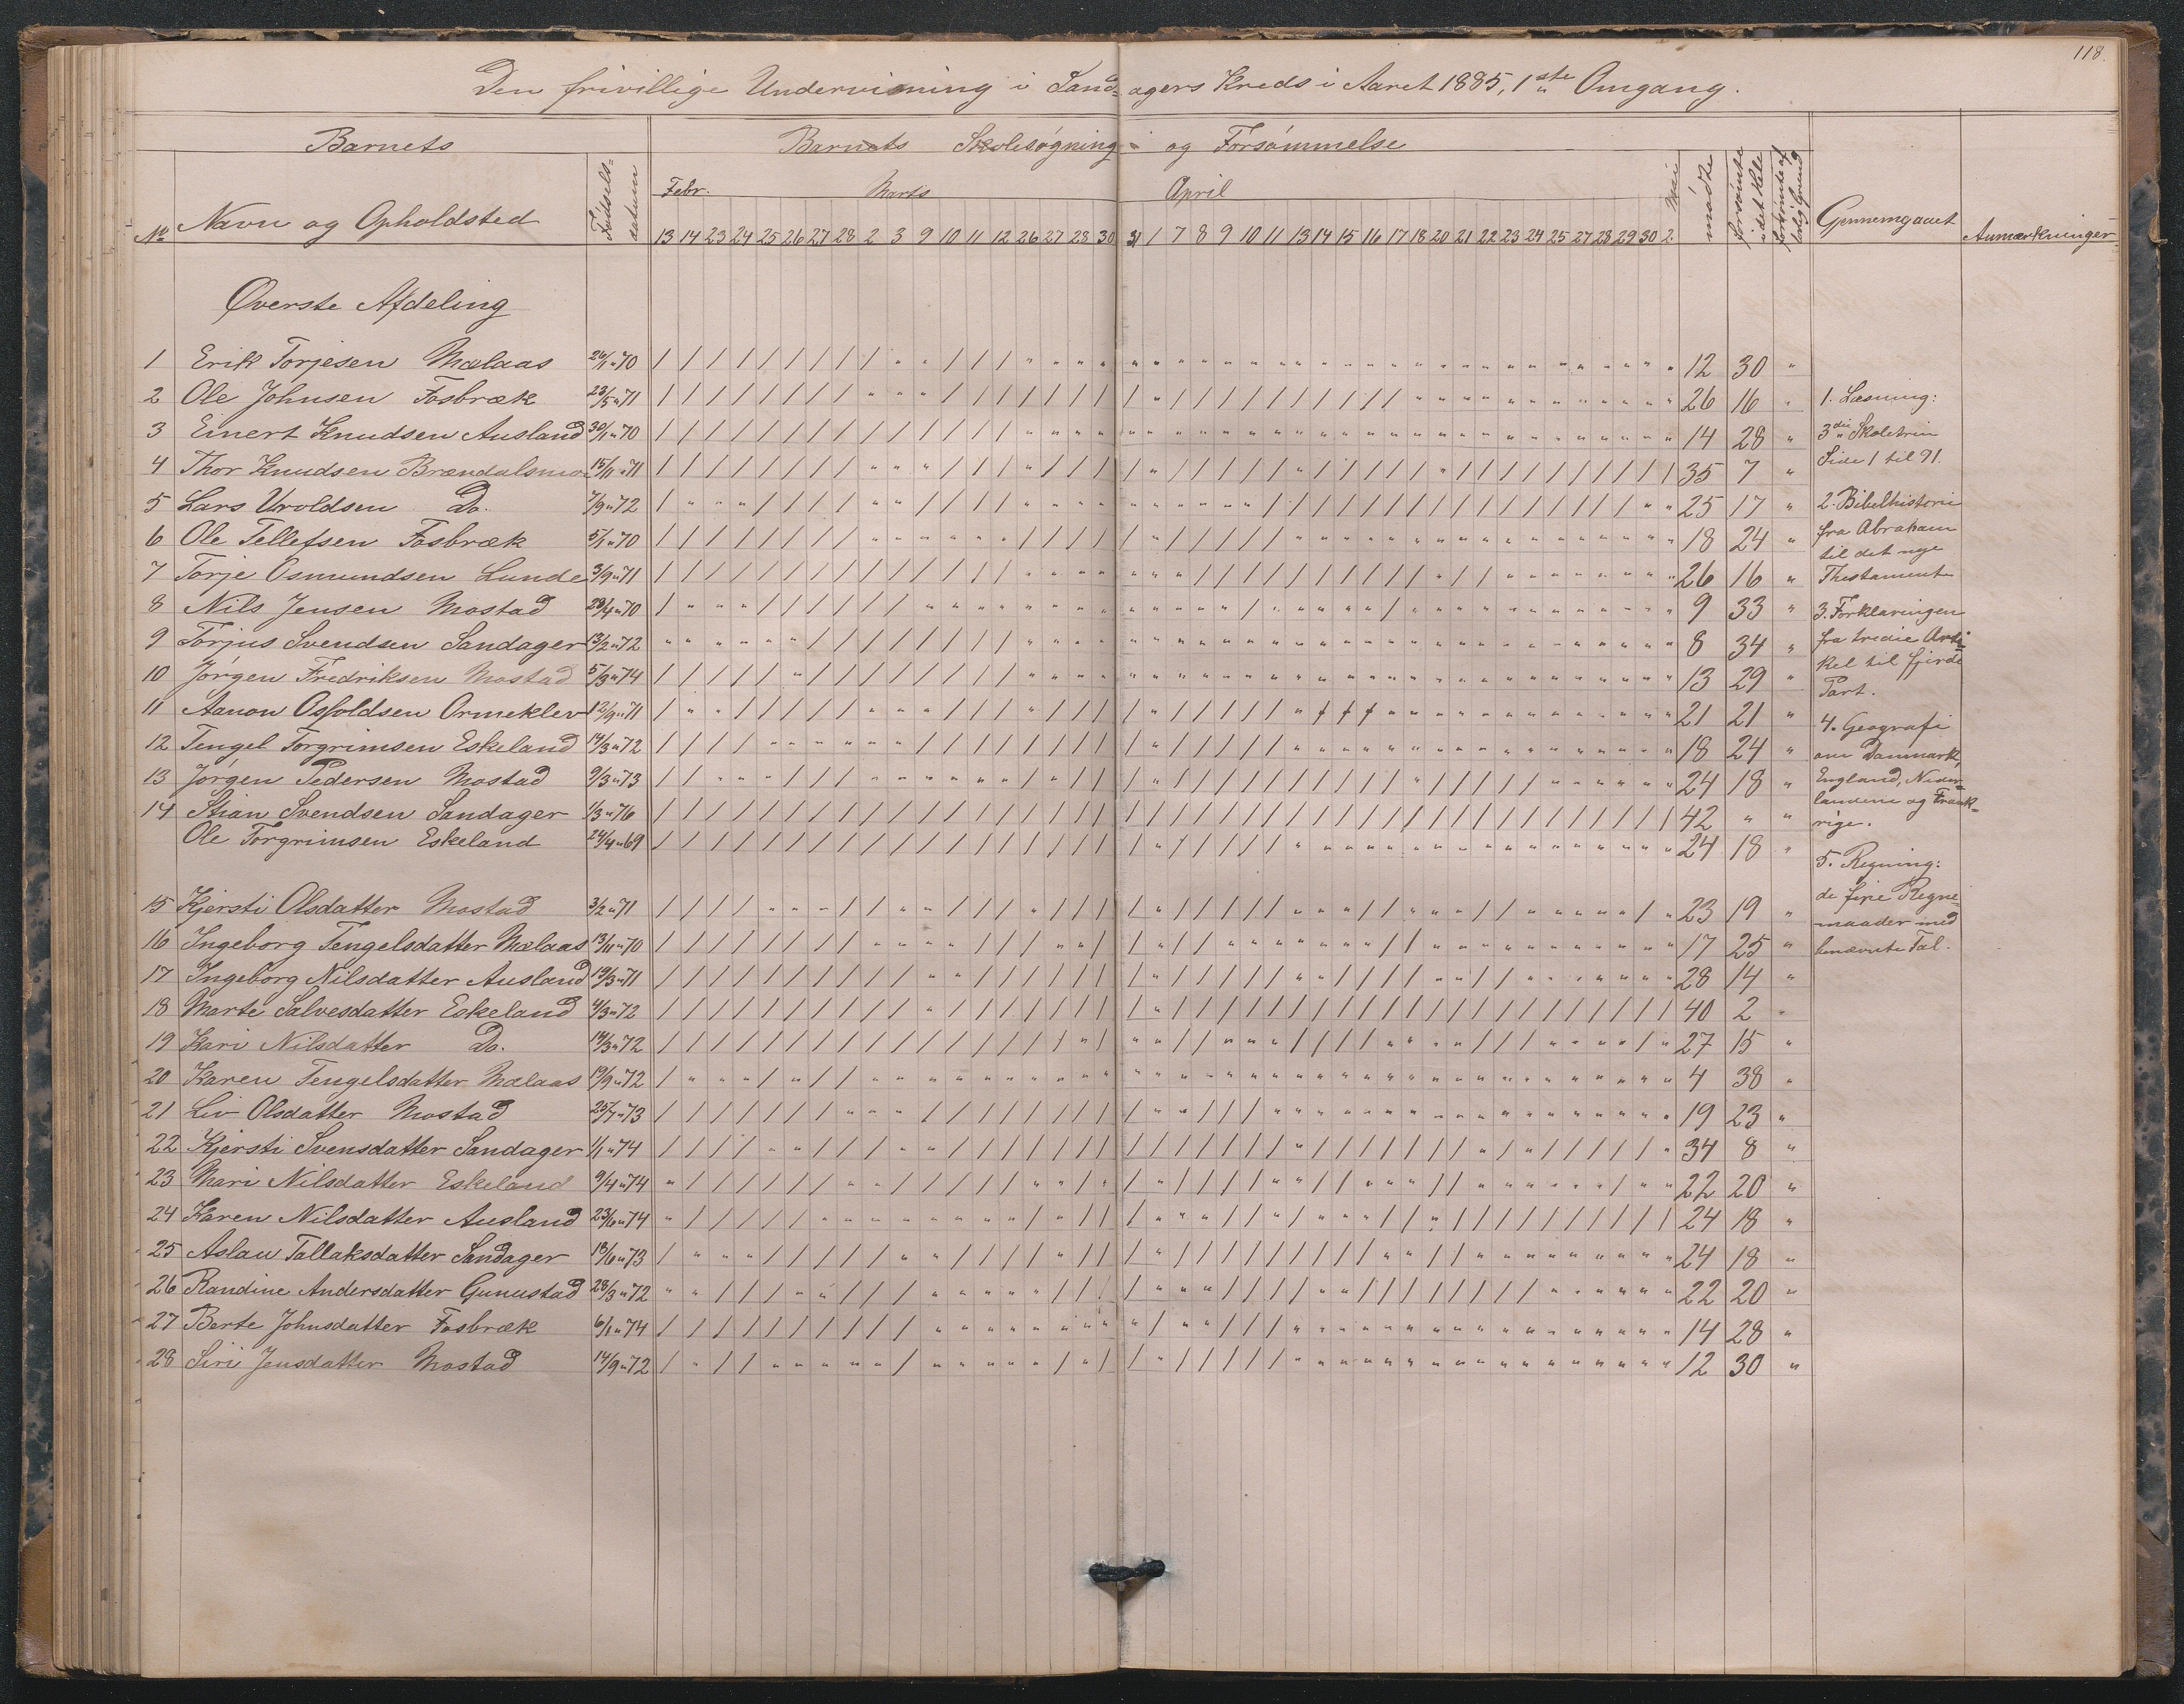 118.
Den frivillige Undervisning i Sand-agers Kreds i Aaret 1885, 1ste Omgang.
Barnets
Barnets Skolesøgning og Forsømmelse
No Navn og Opholdsted Fødsels-datum
Febr. Marts April Mai
mødte forsømte i det Hele forsømte af lovlig Grund
Gjennemgaaet Anmærkninger
13 14 23 24 25 26 27 28 2 3 9 10 11 12 26 27 28 30 31 1 7 8 9 10 11 13 14 15 16 17 18 20 21 22 23 24 25 27 28 29 30 2.
Øverste Afdeling
1 Erik Torjesen Mælaas 26/1 "70 12 30 "
2 Ole Johnsen Fosbræk 23/5 "71 26 16 "
3 Einert Knudsen Ausland 30/1 "70 14 28 "
4 Thor Knudsen Brændalsmo 15/11 "71 35 7 "
5 Lars Uvoldsen Do. 7/9 "72 25 17 "
6 Ole Tellefsen Fosbræk 5/1 "70 18 24 "
7 Torje Osmundsen Lunde 3/9 "71 26 16 "
8 Nils Jensen Mostad 28/4 "70 9 33 "
9 Torjus Svendsen Sandager 13/2 "72 8 34 "
10 Jørgen Fredriksen Mostad 5/3 "74 13 29 "
11 Aanon Osfoldsen Ormeklev 12/9 "71 21 21 "
12 Tengel Torgrimsen Eskeland 14/3 "72 18 24 "
13 Jørgen Pedersen Mostad 9/3 "73 24 18 "
14 Stian Svendsen Sandager 1/3 "76 42 " "
Ole Torgrimsen Eskeland 24/4 "69 24 18 "
15 Kjersti Olsdatter Mostad 3/2 "71 23 19 "
16 Ingeborg Tengelsdatter Mælaas 13/11 "70 17 25 "
17 Ingeborg Nilsdatter Ausland 19/3 "71 28 14 "
18 Marte Salvesdatter Eskeland 4/3 "72 40 2 "
19 Kari Nilsdatter Do. 19/3 "72 27 15 "
20 Karen Tengelsdatter Mælaas 19/9 "72 4 38 "
21 Liv Olsdatter Mostad 25/7 "73 19 23 "
22 Kjersti Svensdatter Sandager 1/1 "74 34 8 "
23 Mari Nilsdatter Eskeland 9/4 "74 22 20 "
24 Karen Nilsdatter Ausland 23/6 "74 24 18 "
25 Aslau Tallaksdatter Sandager 18/6 "73 24 18 "
26 Randine Andersdatter Gunustad 28/3 "72 22 20 "
27 Berte Johnsdatter Fosbræk 6/1 "74 14 28 "
28 Siri Jensdatter Mostad 14/9 "72 12 30 "
1. Læsning:
3die Skoletrin
Side 1 til 91.
2. Bibelhistorie
fra Abraham
til det nye
Thestament
3. Forklaringen
fra tredie Arti-
kel til fjerde
Part.
4. Geografi
om Danmark,
England, Neder-
landene og Frank-
rige.
5. Regning:
de fire Regne-
maader med
benævnte Tal.